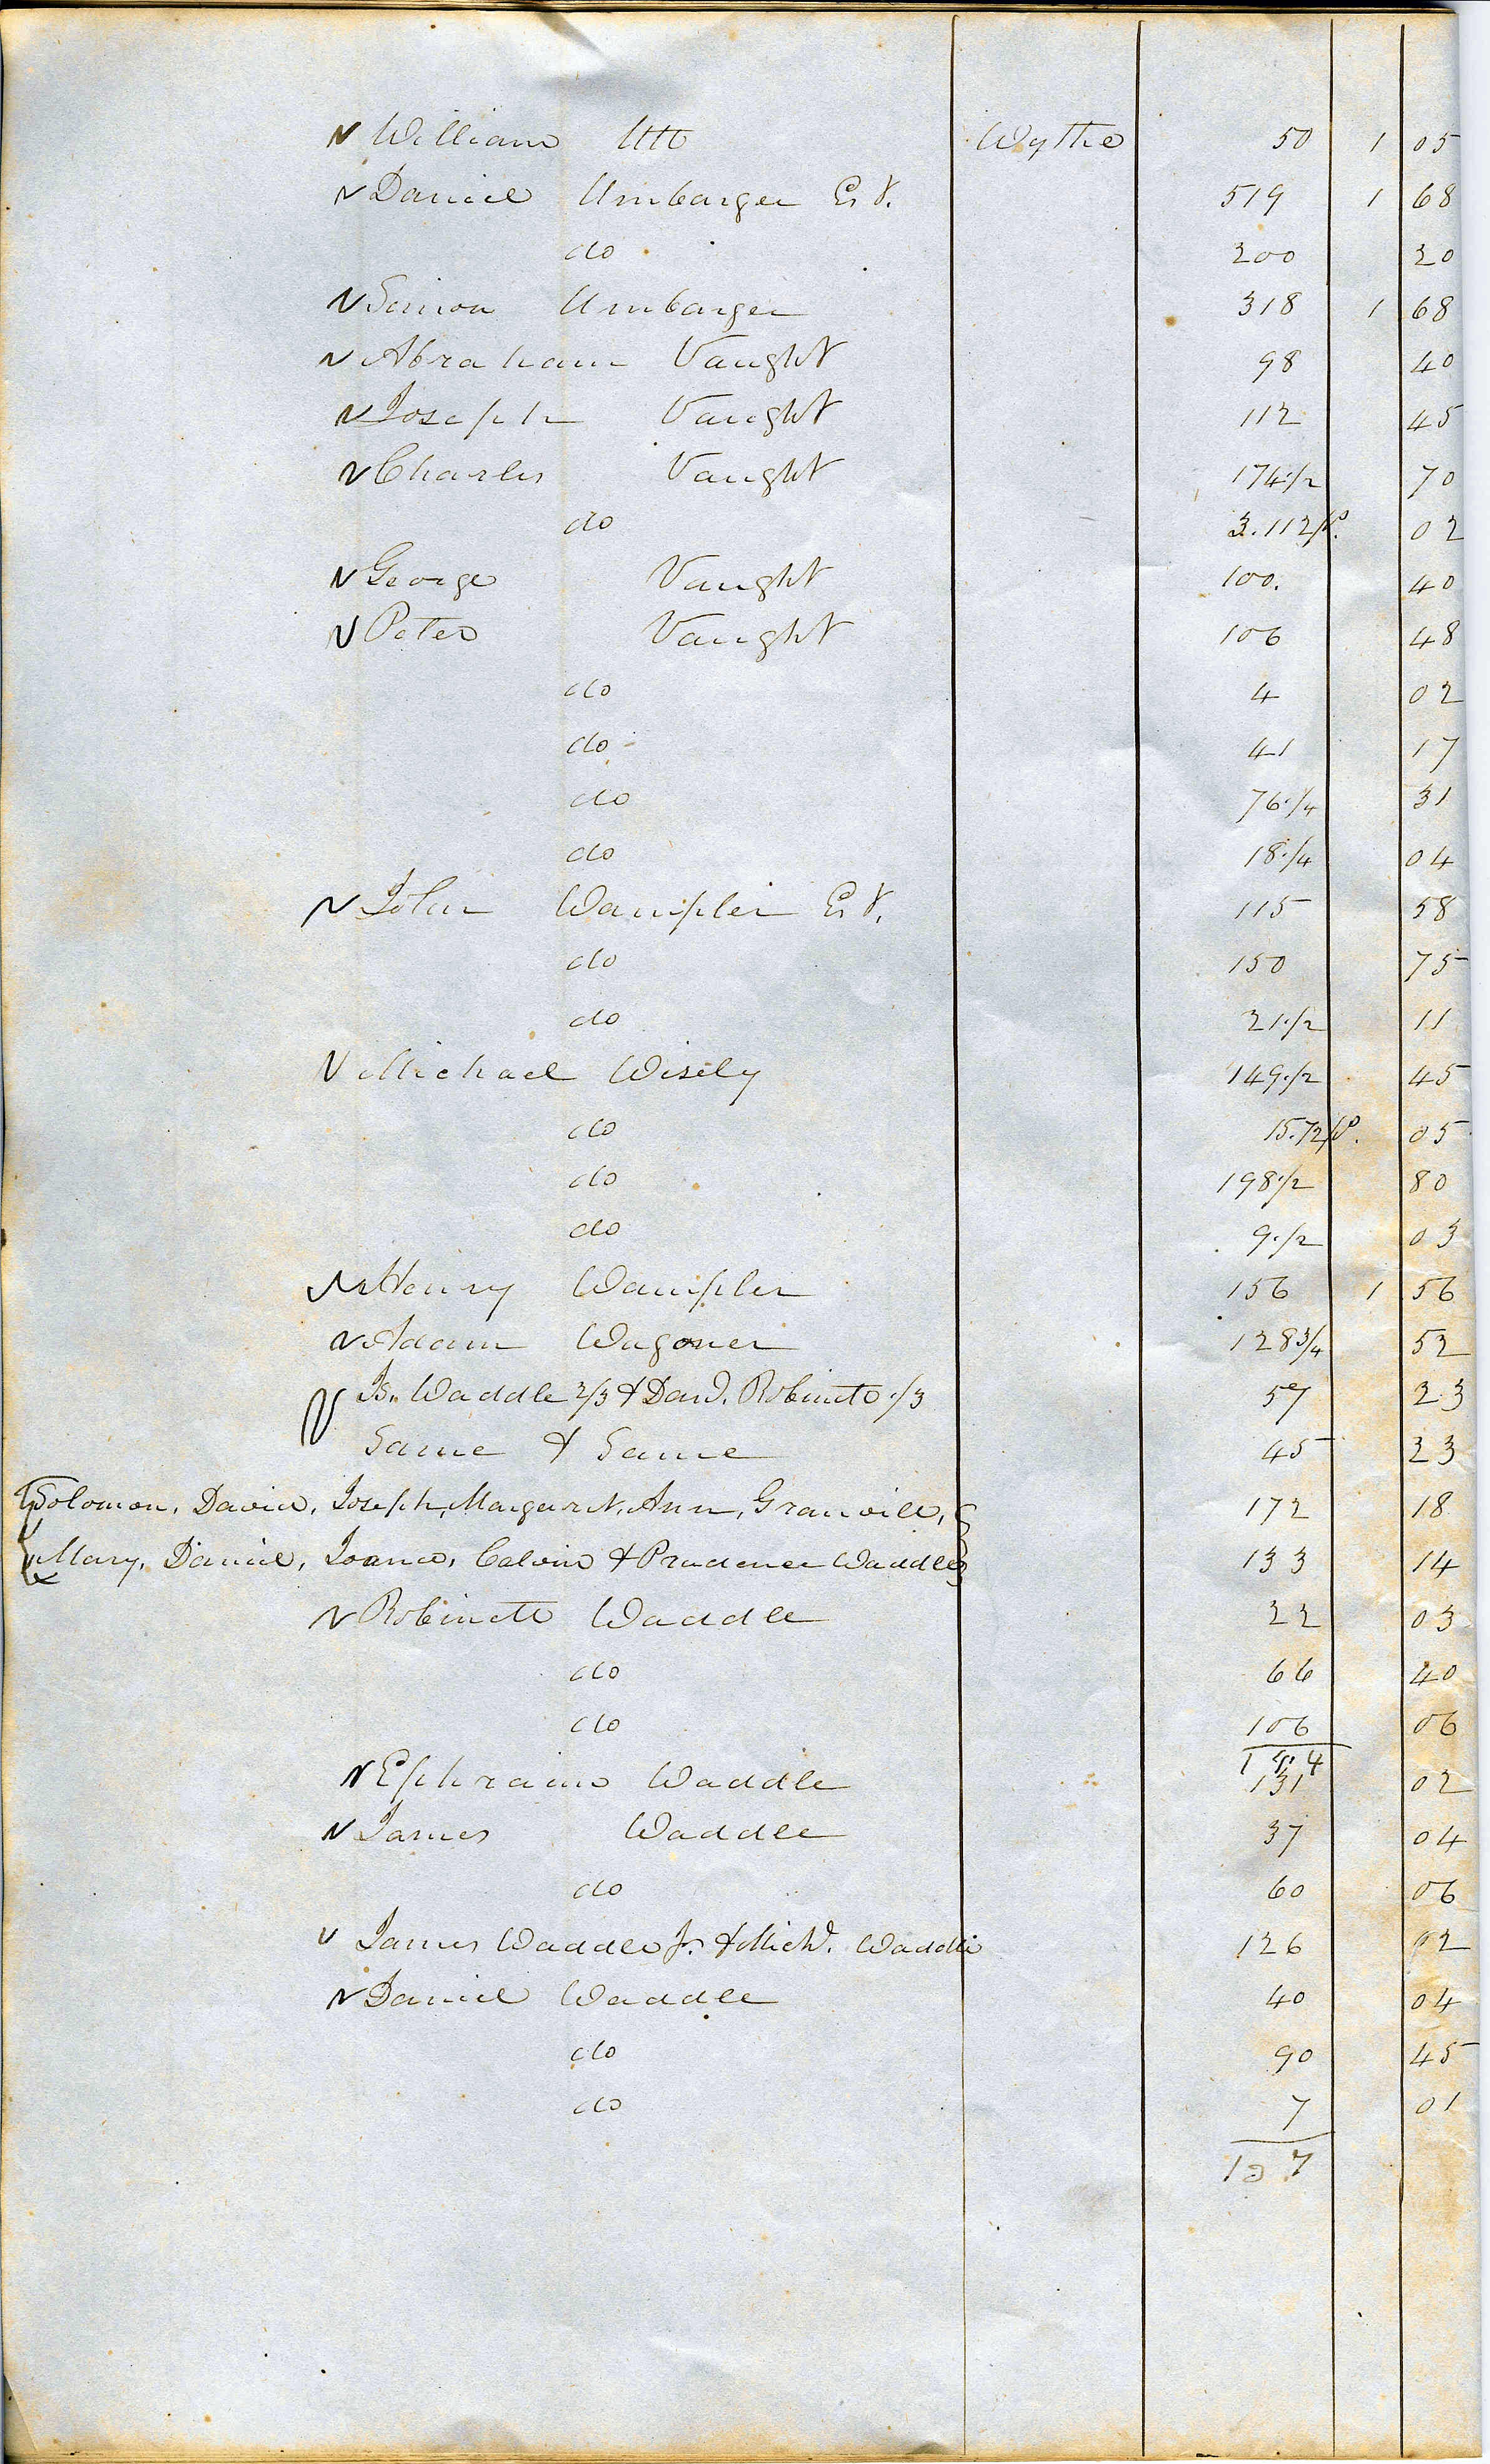 William Utt Wythe 50 1 05
Daniel Umbarger Est. 519 1 68
do 200 20
Simon Umbarger 318 1 68
Abraham Vaught 98 40
Joseph Vaught 112 45
Charles Vaught 174 1/2 70
do 3.112 p. 02
George Vaught 100. 40
Peter Vaught 106 48
do 4 02
do 41 17
do 76 1/4 31
do 18 1/4 04
John Wampler Est. 115 58
do 150 75
do 21 1/2 11
Michael Wisely 149 1/2 45
do 15.72 p. 05
do 198 1/2 80
do 9 1/2 03
Henry Wampler 156 1 56
Adam Wagoner 128 3/4 52
Js. Waddle 2/3 & Davd. Robinett 1/3 57 23
Same & Same 45 23
Solomon, David, Joseph, Margaret, Ann, Granville, 172 18
Mary, Daniel, Calvin & Prudence Waddle 133 14
Robinett Waddle 22 03
do 66 40
do 106 06
Ephraim Waddle 131 02
James Waddle 37 04
do 60 06
James Waddle Jr. & Michl. Waddle 126 02
Daniel Waddle 40 04
do 90 45
do 7 01